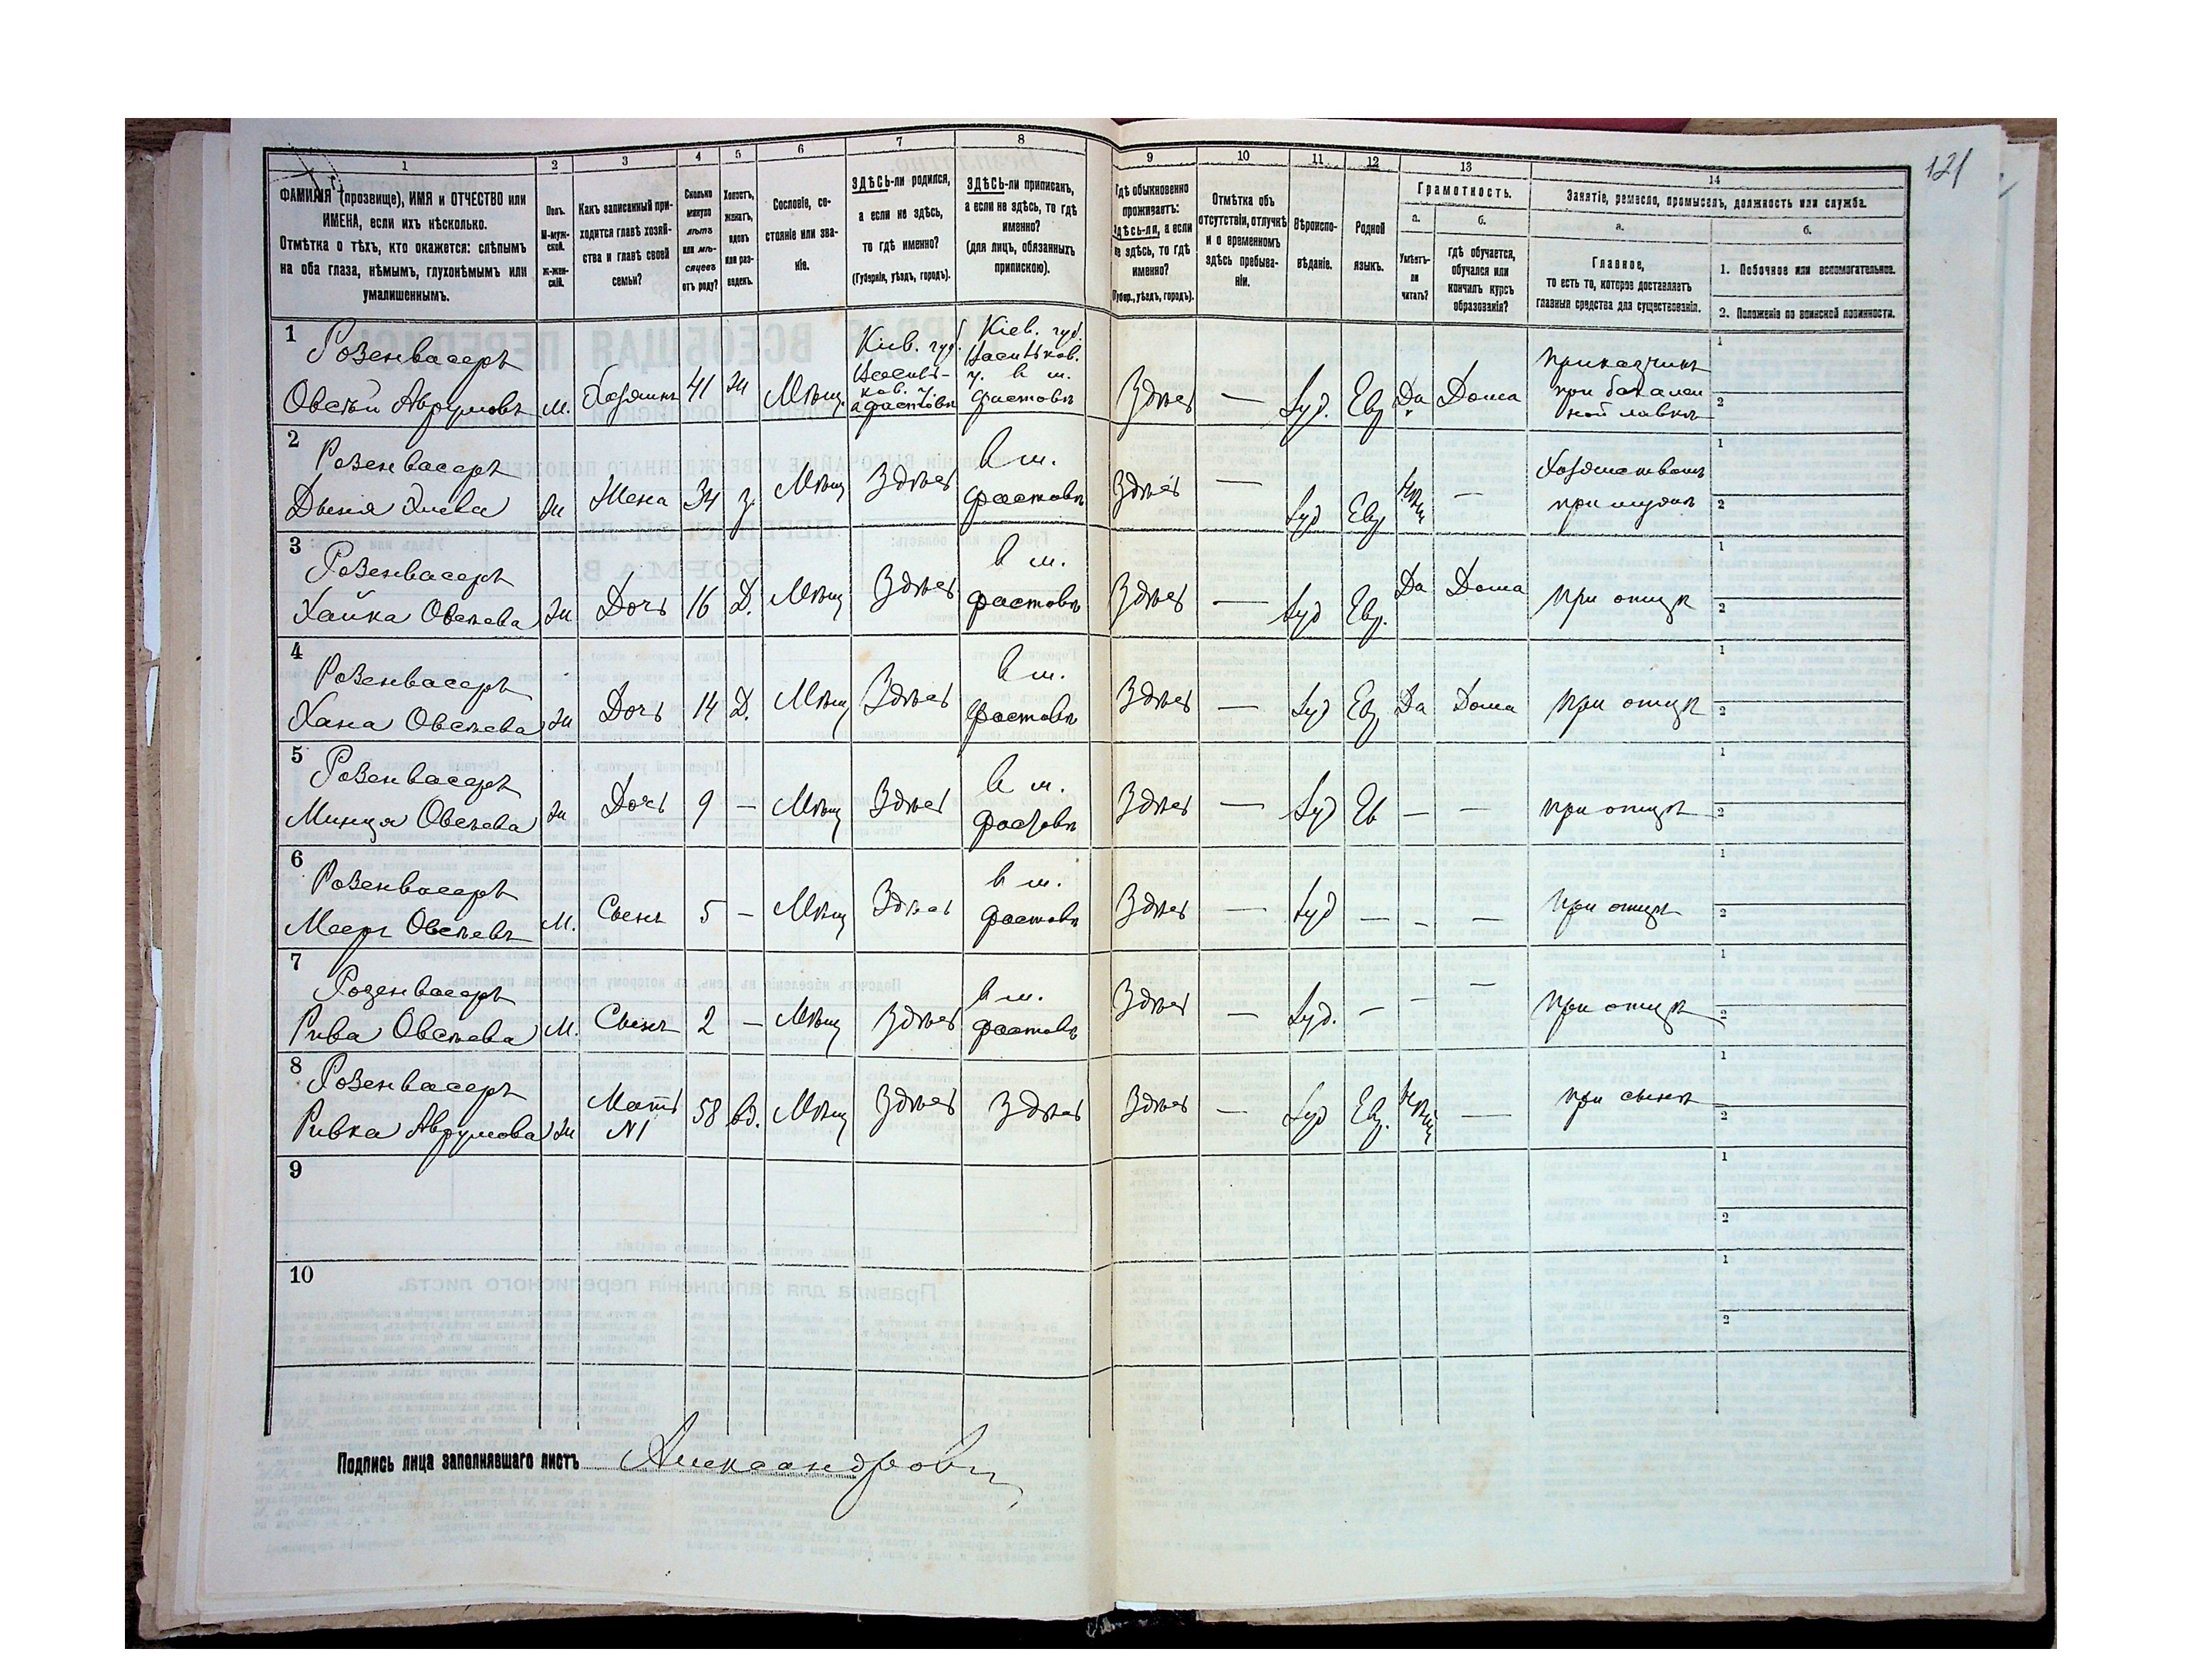 121
1
2
3
4
5
6
7
8
9
10
11
12
13
14
ФАМИЛІЯ (прозвище), ИМЯ и ОТЧЕСТВО или
ИМЕНА, если ихъ нѣсколько.
Отмѣтка о тѣхъ, кто окажется: слѣпымъ
на оба глаза, нѣмымъ, глухонѣмымъ или
умалишеннымъ.
Полъ.
М-муж-
ской.
Ж-жен-
скій.
Какъ записанный при-
ходится главѣ хозяй-
ства и главѣ своей
семьи?
Сколько
минуло
лѣтъ
или мѣ-
сяцевъ
отъ роду?
Холостъ,
женатъ,
вдовъ
или раз-
веденъ.
Сословіе, со-
стояніе или зва-
ніе.
ЗДѢСЬ-ли родился,
а если не здѣсь,
то гдѣ именно?
(Губернія, уѣздъ, городъ).
ЗДѢСЬ-ли приписанъ,
а если не здѣсь, то гдѣ
именно?
(для лицъ, обязанныхъ
припискою).
Гдѣ обыкновенно
проживаетъ:
здѣсь-ли, а если
не здѣсь, то гдѣ
именно?
(Губер., уѣздъ, городъ).
Отмѣтка объ
отсутствіи, отлучкѣ
и о временномъ
здѣсь пребыва-
ніи.
Вѣроиспо-
вѣданіе.
Родной
языкъ.
Грамотность.
а.
б.
Умѣетъ-
ли
читать?
гдѣ обучается,
обучался или
кончилъ курсъ
образованія?
Занятіе, ремесло, промыселъ, должность или служба.
а.
б.
Главное,
то есть то, которое доставляетъ
главныя средства для существованія.
1. Побочное или вспомогательное.
2. Положеніе по воинской повинности.
1
Розенвасеръ
Овсѣй Аврумовъ
М.
Хозяинъ
41
Ж
Мѣщ.
Кіев. губ.
Васильков. у.
Фастовъ
Кіев. губ.
Васильков.
у. в м.
Фастовѣ
Здѣсь
—
Іуд.
Евр
Да
Дома
приказчикъ
при бакалей
ной лавкѣ
1
2
2
Розенвасеръ
Ж
Жена
34
з.
Мѣщ
Здѣсь
в м.
Фастовѣ
Здѣсь
—
Іуд
Евр
—
Хозяйствомъ
при мужѣ
1
2
3
Розенвасеръ
Хайка Овсѣева
Ж
Дочь
16
Д.
Мѣщ
Здѣсь
в м.
Фастовѣ
Здѣсь
—
Іуд
Евр.
Да
Дома
при отцѣ
1
2
4
Розенвасеръ
Хана Овсѣева
Ж
Дочь
14
Д.
Мѣщ
Здѣсь
в м.
Фастовѣ
Здѣсь
—
Іуд
Евр
Да
Дома
при отцѣ
1
2
5
Розенвасеръ
Минця Овсѣева
Ж
Дочь
9
—
Мѣщ
Здѣсь
в м.
Фастовѣ
Здѣсь
—
Іуд
Ев
—
—
при отцѣ
1
2
6
Розенвасеръ
Мееръ Овсѣевъ
М.
Сынъ
5
—
Мѣщ
Здѣсь
в м.
Фастовѣ
Здѣсь
—
Іуд
—
—
—
при отцѣ
1
2
7
Розенвасеръ
Рива Овсѣева
М.
Сынъ
2
—
Мѣщ
Здѣсь
в м.
Фастовѣ
Здѣсь
—
Іуд.
—
—
—
при отцѣ
1
2
8
Розенвасеръ
Ривка Аврумова
Ж
Мать
№1
58
вд.
Мѣщ
Здѣсь
Здѣсь
Здѣсь
—
Іуд
Евр.
—
при сынѣ
1
2
9
1
2
10
1
2
Подпись лица заполнявшаго листъ